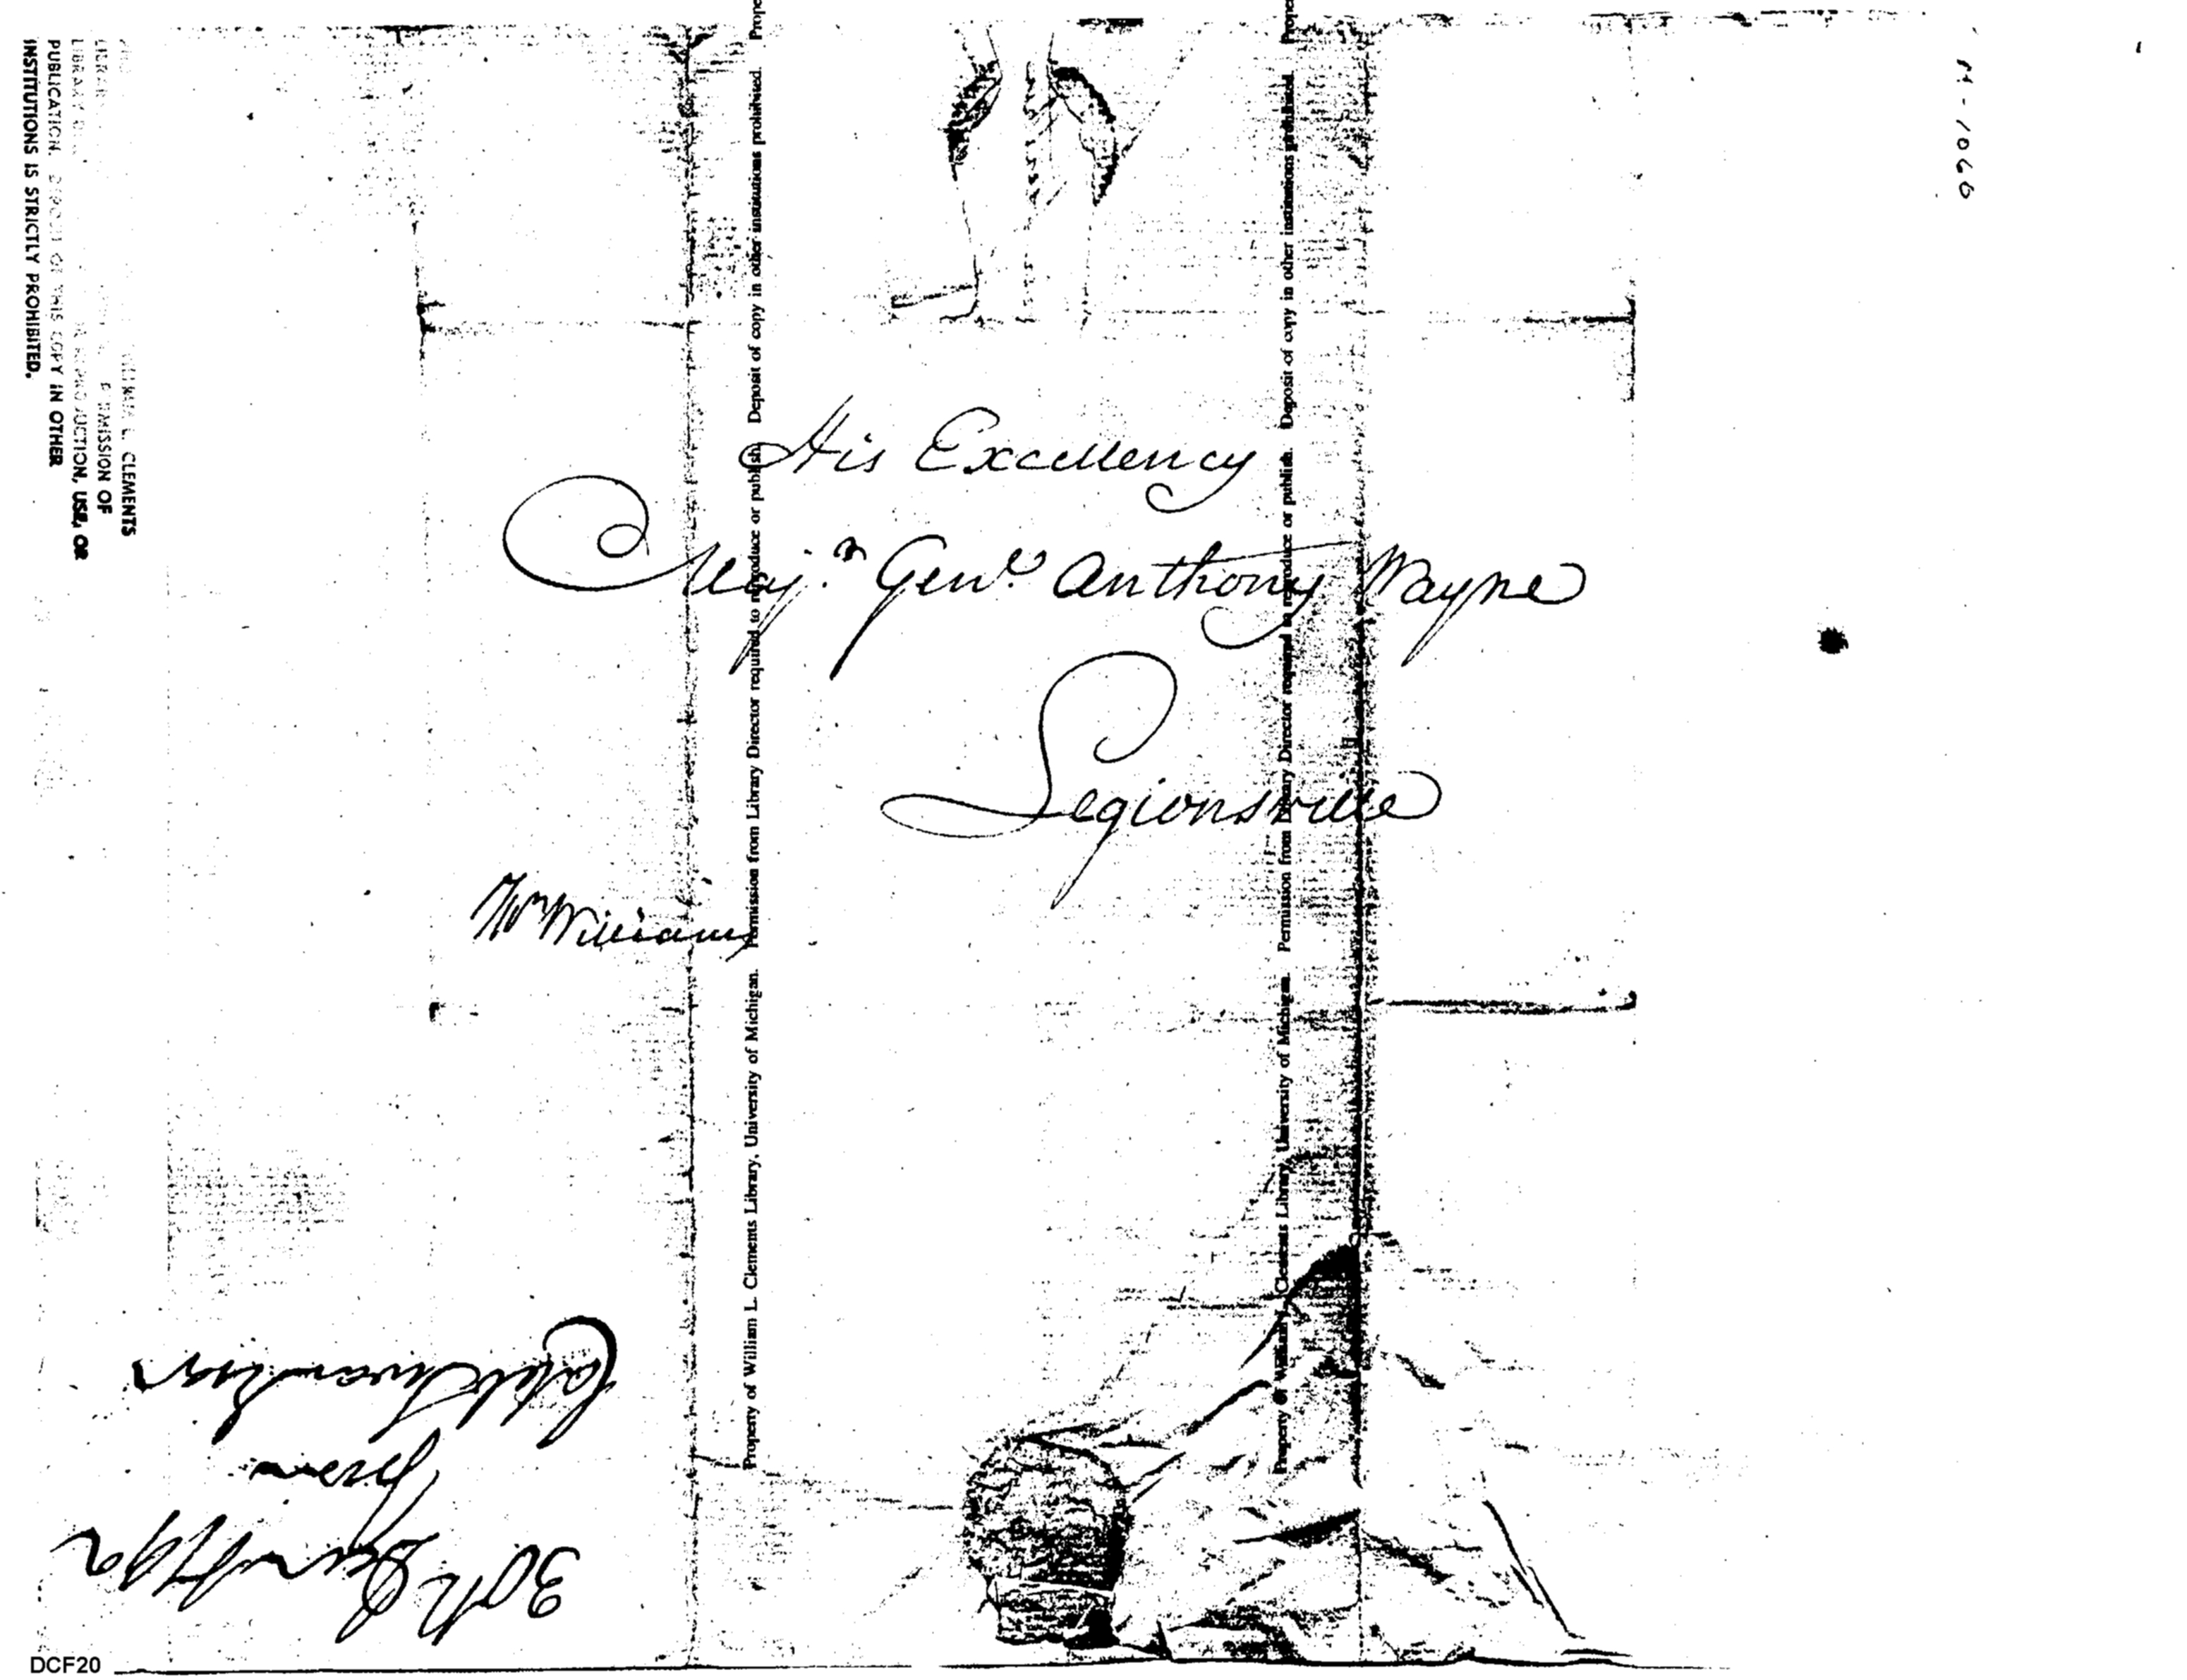 His Excellency
Maj.r Genl. Anthony Wayne
Legionsville
Mr Williams
30th Decr 1792
from
Caleb Swan
M-1060
CLEMENTS
PERMISSION OF
REPRODUCTION, USE, OR
PUBLICATION. DEPOSIT OF THIS COPY IN OTHER
INSTITUTIONS IS STRICTLY PROHIBITED.
Property of William L. Clements Library, University of Michigan. Permission from Library Director required to reproduce or publish. Deposit of copy in other institutions prohibited. Prope
Property of William L. Clements Library, University of Michigan. Permission from Library Director required to reproduce or publish. Deposit of copy in other institutions prohibited. Prope
DCF20